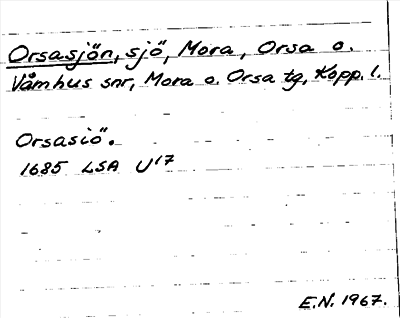 Orsasjön, sjö, Mora, Orsa o.
Våmhus snr, Mora o. Orsa tg, Kopp. l.
Orsasiö.
1685 LSA U17
E.N. 1967.